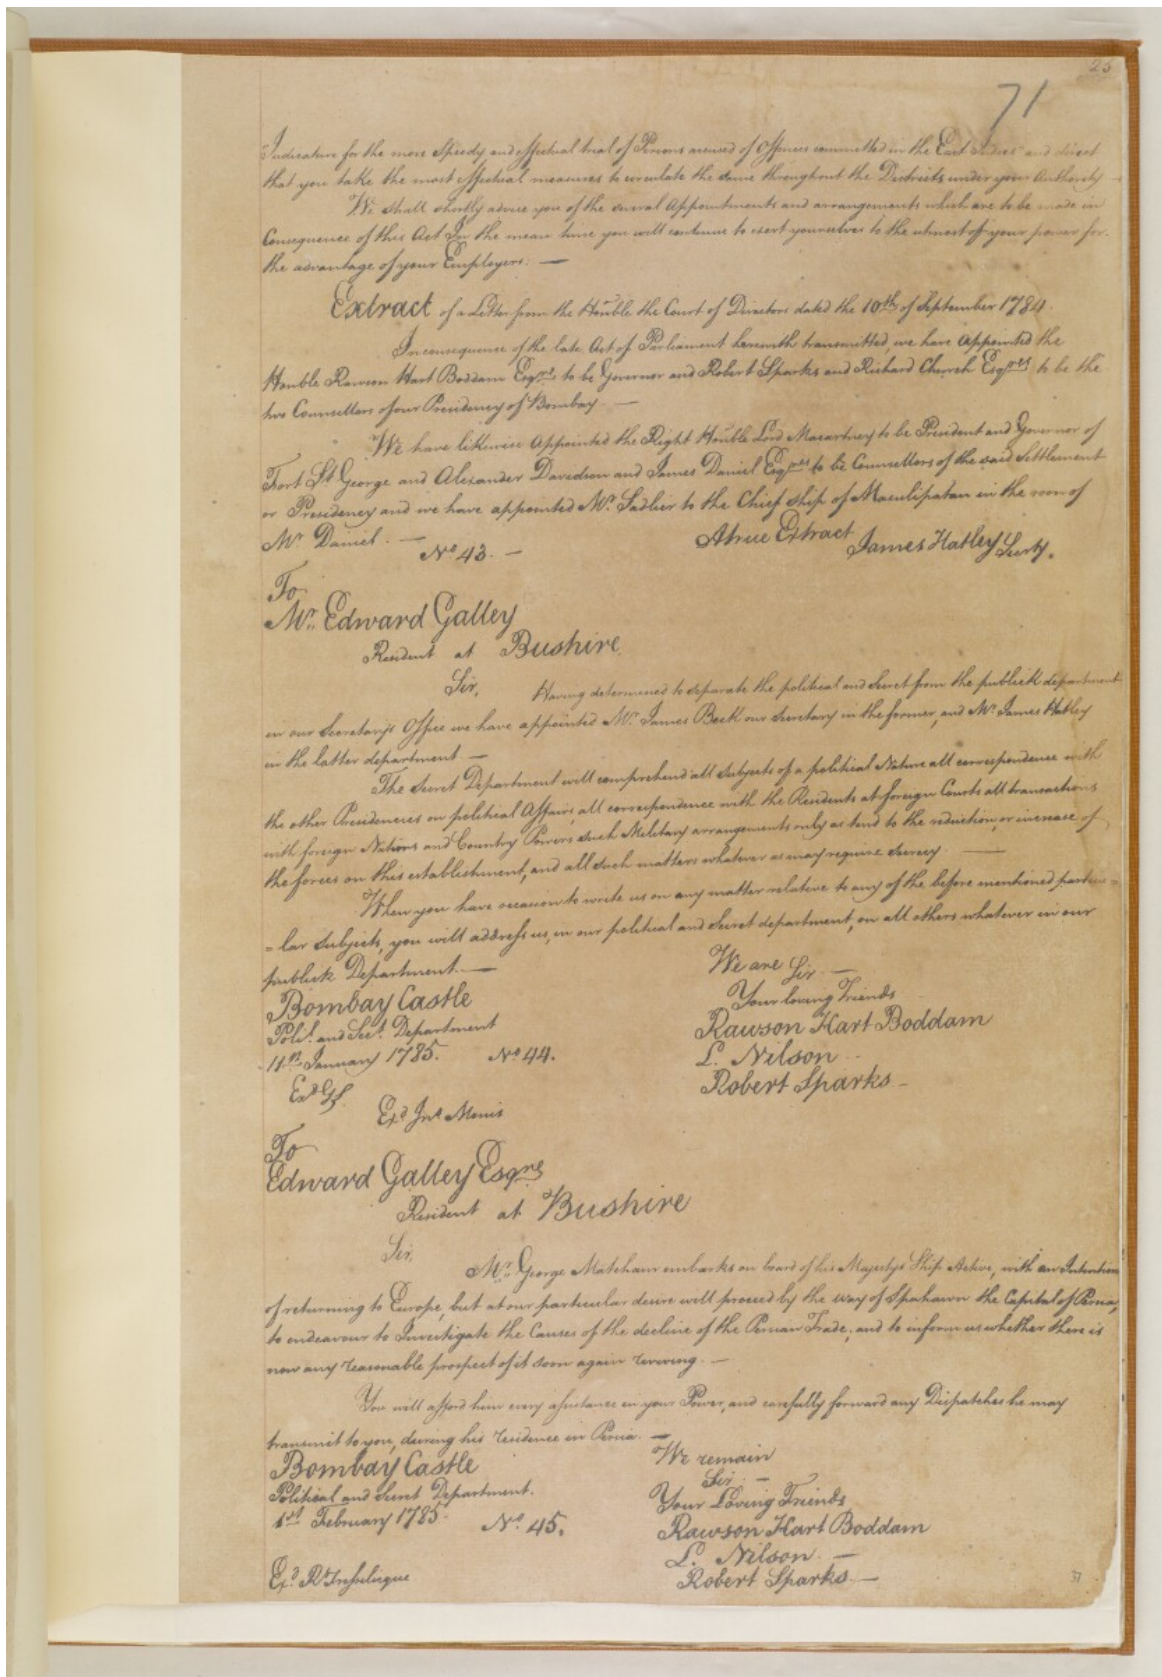 25
71
Judicature for the more Speedy and effectual trial of Persons accused of Offences committed in the East Indies and direct
that you take the most effectual measures to circulate the same throughout the Districts under your Authority
We shall shortly advise you of the several Appointments and arrangements which are to be made in
Consequence of this Act In the mean time you will continue to exert yourselves to the utmost of your power for
the advantage of your Employers. —
Extract of a Letter from the Honble the Court of Directors dated the 10th of September 1784.
In consequence of the late Act of Parliament herewith transmitted, we have Appointed the
Honble Rawson Hart Boddam Esqre to be Governor and Robert Sparks and Richard Church Esqres to be the
two Counsellors of our Presidency of Bombay. —
We have likewise Appointed the Right Honble Lord Macartney to be President and Governor of
Fort St George and Alexander Davidson and James Daniel Esqres to be Counsellors of the said Settlement
or Presidency and we have appointed Mr Sadlier to the Chief ship of Masulipatan in the room of
Mr Daniel. —
A true Extract James Hatley Secty.
No 43. —
To
Mr. Edward Galley
Resident at Bushire
Sir, Having determined to separate the political and Secret from the publick department
in our Secretary's Office we have appointed Mr. James Beck our Secretary in the former, and Mr James Hatley
in the latter department —
The Secret Department will comprehend all Subjects of a political Nature all correspondence with
the other Presidencies on political Affairs all correspondence with the Residents at foreign Courts all transactions
with foreign Nations and Country Powers such Military arrangements only as tend to the reduction, or increase of
the forces on this establishment, and all such matters whatever as may require secrecy. —
When you have occasion to write us on any matter relative to any of the before mentioned particu=
=lar Subjects, you will address us, in our political and Secret department, on all others whatever in our
publick Department. —
We are Sir. —
Your loving Friends
Bombay Castle
Polil. and Sect. Department
11th January 1785.
Rawson Hart Boddam
L. Nilson
Robert Sparks —
No 44.
Exd
Exd Jno Morris
To
Edward Galley Esqre
Resident at Bushire
Sir,
Mr. George Matcham embarks on board of his Majestys Ship Active, with an Intention
of returning to Europe, but at our particular desire will proceed by the way of Spahawn the Capital of Persia,
to endeavour to Investigate the Causes of the decline of the Persian Trade; and to inform us whether there is
now any reasonable prospect of it soon again reviving. —
You will afford him every assistance in your Power, and carefully forward any Dispatches he may
transmit to you, during his residence in Persia. —
We remain
Sir. —
Your Loving Friends
Bombay Castle
Political and Secret Department.
1st February 1785.
Rawson Hart Boddam
L. Nilson. —
Robert Sparks. —
No. 45.
Exd. Rt
37